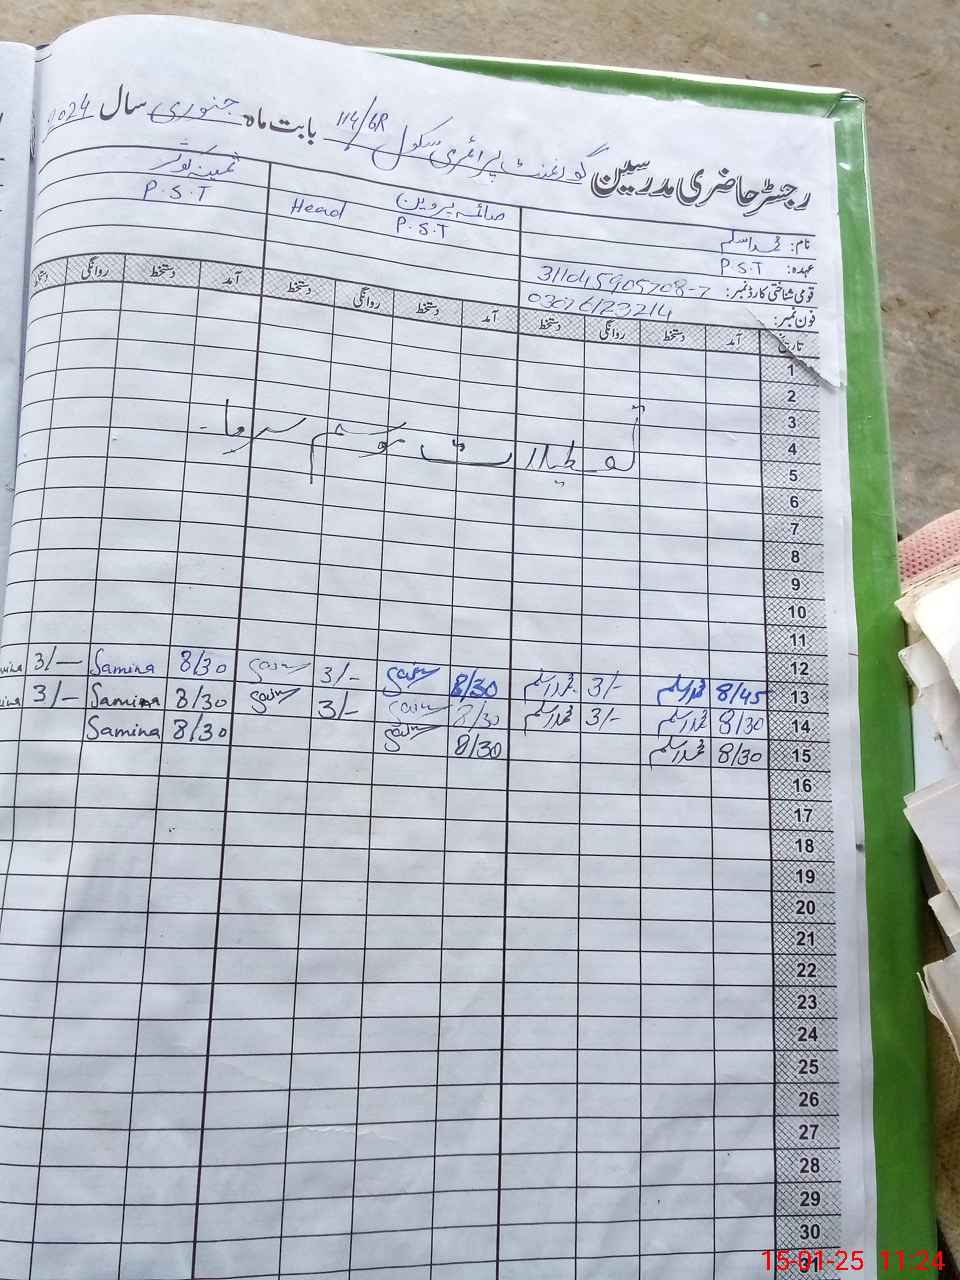 رجسٹر حاضری مدرسین گورنمنٹ پرائمری سکول 114/6R بابت ماہ جنوری سال 2024
نام: محمد اسلم صائمہ پروین Head ثمینہ کوثر
عہدہ: P.S.T P.S.T P.S.T
قومی شناختی کارڈ نمبر: 311045905708-7
فون نمبر: 03076123214
تاریخ آمد دستخط روانگی دستخط آمد دستخط روانگی دستخط آمد دستخط روانگی دستخط
1
2
3
تعطیلات موسم سرما
4
5
6
7
8
9
10
11
12
13 8/45 محمد اسلم 3/- محمد اسلم 8/30 3/- 8/30 Samina 3/-
14 8/30 محمد اسلم 3/- محمد اسلم 8/30 3/- 8/30 Samina 3/-
15 8/30 محمد اسلم 8/30 8/30 Samina
16
17
18
19
20
21
22
23
24
25
26
27
28
29
30
31
15-01-25 11:24